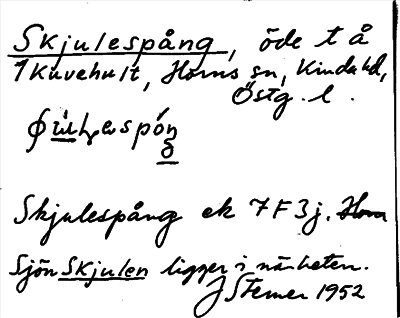 Skjulespång, öde t å
1 Kuvehult, Horns sn, Kinda hd,
Östg. l.
Skjulespång ek 7F3j. Horn
Sjön Skjulen ligger i närheten.
J Sterner 1952